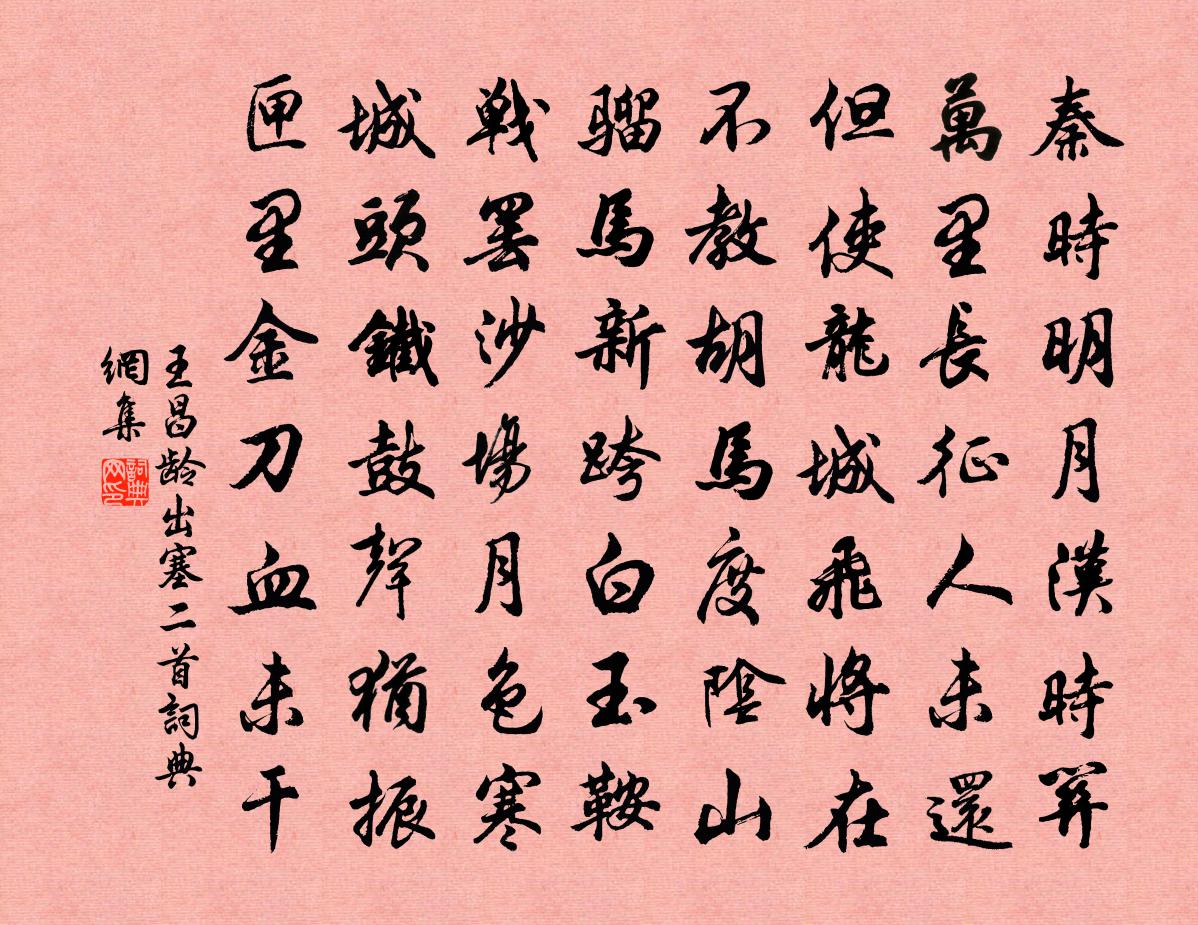 秦時明月漢時關
萬里長征人未還
但使龍城飛將在
不教胡馬度陰山
騮馬新跨白玉鞍
戰罷沙場月色寒
城頭鐵鼓聲猶振
匣里金刀血未干
王昌齡出塞二首詞典
網集
詞典
网印